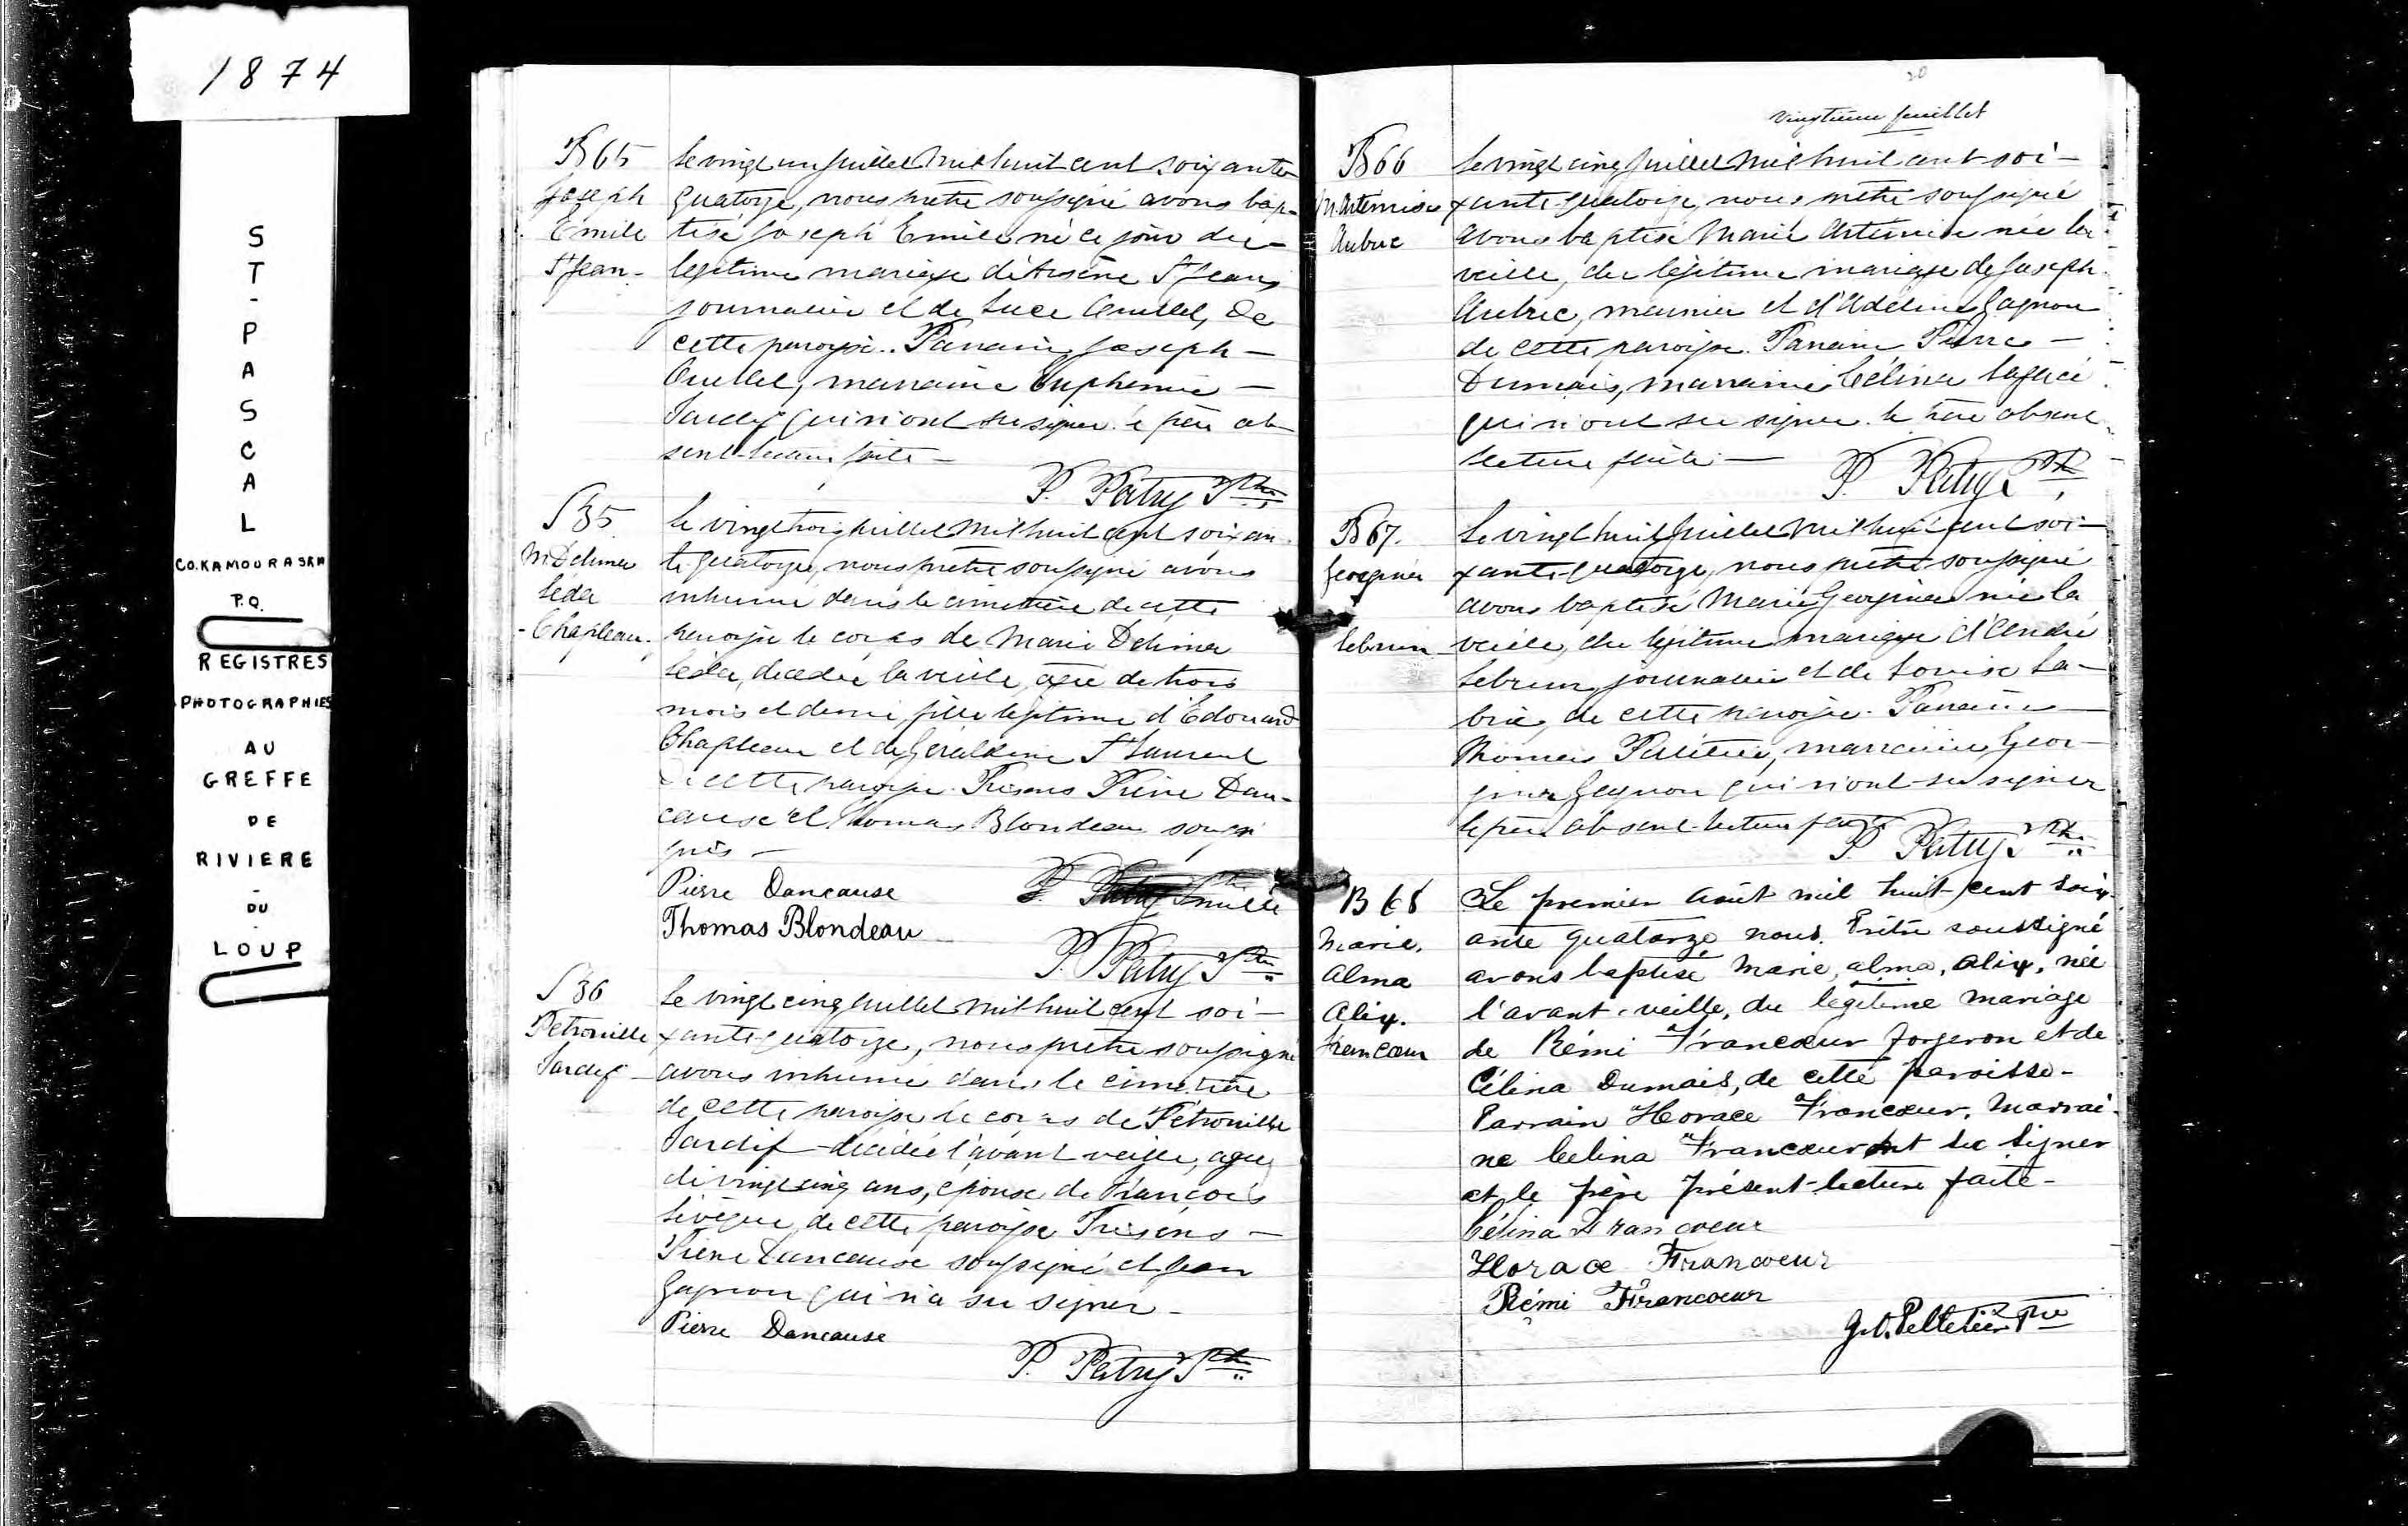 1874
ST-PASCAL
CO. KAMOURASKA
P.Q.
REGISTRES
PHOTOGRAPHIES
AU
GREFFE
DE
RIVIERE
-
DU
-
LOUP
B65
Joseph
Emile
St Jean-
Le vingt un Juillet mil huit cent soixante
quatorze, nous prêtre soussigné avons bap-
tisé Joseph Emile né ce jour du-
légitime mariage d'Arsène St Jean
journalier et de Luce Ouellet, de
cette paroisse. Parrain Joseph-
Ouellet, marraine Euphemie-
Tardif qui n'ont su signer. le père ab-
sent-lecture faite-
P. Patry Ptre
S35
M. Delima
Leda
-Chapleau-
Le vingt trois Juillet mil huit cent soixan-
te quatorze, nous prêtre soussigné avons
inhumé dans le cimetière de cette
paroisse le corps de Marie Delima
Leda, decedée la veille, agée de trois
mois et demi, fille legitime d'Edouard
Chapleau et de Geraldine St Laurent
de cette paroisse. Présens Pierre Dan-
cause et Thomas Blondeau soussi
gnés-
Pierre Dancause
Thomas Blondeau
P. Patry Ptre
S36
Petronille
Tardif-
Le vingt cinq Juillet mil huit cent soi-
xante-quatorze, nous prêtre soussigné
avons inhumé dans le cimetière
de cette paroisse le corps de Pétronille
Tardif-decédée l'avant veille, agée
de vingt cinq ans, épouse de François
Lévêque, de cette paroisse Présens-
Pierre Dancause soussigné et Jean
Gagnon qui n'a su signer-
Pierre Dancause
P. Patry Ptre
20
vingtième feuillet
B66
M. Artémise
Aubue
Le vingt cinq Juillet mil huit cent soi-
xante quatorze, nous prêtre soussigné
avons baptisé Marie Artémise née la
veille, du légitime mariage de Joseph
Aubue, meunier et d'Adeline Gagnon
de cette paroisse. Parrain Pierre-
Dumais, marraine Célina Lagacé
qui n'ont su signer. le père absent
lecture faite-
P. Patry Ptre
B67.
Georgina
Lebrun
Le vingt huit Juillet mil huit cent soi-
xante-quatorze, nous prêtre soussigné
avons baptisé Marie Georgina née la
veille, du légitime mariage d'André
Lebrun, journalier et de Louise La-
brie, de cette paroisse. Parrain-
Thomas Pelletier, marraine, Geor-
gina Gagnon qui n'ont su signer
le père absent-lecture faite
P. Patry Ptre
B68
Marie,
Alma
Alix.
Francoeur
Le premier Août mil huit-cent soix-
ante quatorze nous. Prêtre soussigné
avons baptisé Marie, alma, Alix, née
l'avant-veille, du légitime mariage
de Rémi Francoeur forgeron et de
Célina Dumais, de cette paroisse-
Parrain Horace Francoeur, Marrai-
ne Celina Francoeur ont su signer
et le père présent-lecture faite-
Célina Francoeur
Horace Francoeur
Rémi Francoeur
G. O. Pelletier Ptre